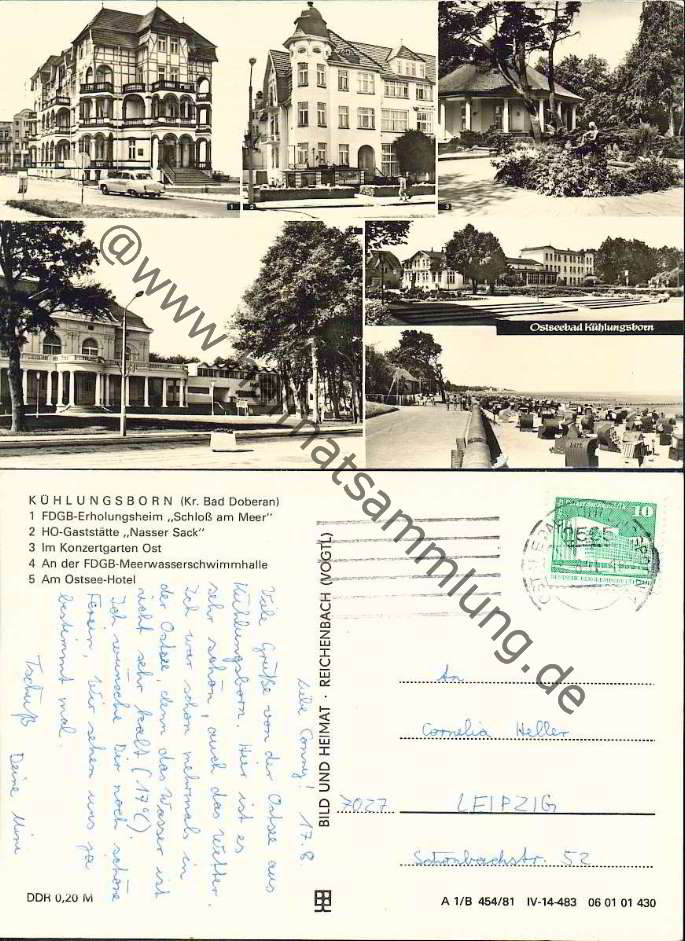 Ostseebad Kühlungsborn
@www.heimatsammlung.de
KÜHLUNGSBORN (Kr. Bad Doberan)
1 FDGB-Erholungsheim „Schloß am Meer"
2 HO-Gaststätte „Nasser Sack"
3 Im Konzertgarten Ost
4 An der FDGB-Meerwasserschwimmhalle
5 Am Ostsee-Hotel
Liebe Conny! 17.8.
Viele Grüße von der Ostsee aus
Kühlungsborn. Hier ist es
sehr schön, auch das Wetter.
Ich war schon mehrmals in
der Ostsee, denn das Wasser ist
nicht sehr kalt (17°C).
Ich wünsche Dir noch schöne
Ferien, wir sehen uns ja
bestimmt mal.
Tschüß
Deine
BILD UND HEIMAT · REICHENBACH (VOGTL)
10
An
Cornelia Heller
7027 LEIPZIG
Schönbachstr. 52
DDR 0,20 M
A 1/B 454/81 IV-14-483 06 01 01 430